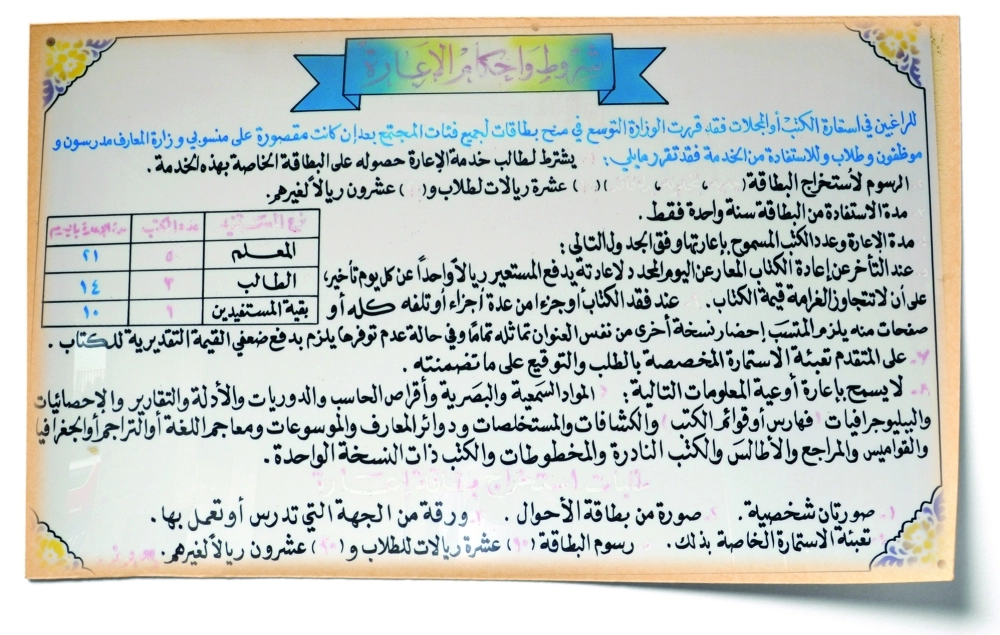 شروط وأحكام الإعارة
للراغبين في استعارة الكتب أو المجلات فقد قررت الوزارة التوسع في منح بطاقات لجميع فئات المجتمع بعد إن كانت مقصورة على منسوبي وزارة المعارف مدرسون و
موظفون وطلاب وللاستفادة من الخدمة فقد تقرر مايلي : يشترط لطالب خدمة الإعارة حصوله على البطاقة الخاصة بهذه الخدمة .
الرسوم لأستخراج البطاقة ( ) ( ) عشرة ريالات لطلاب و ( ) عشرون ريالاً لغيرهم.
مدة الاستفادة من البطاقة سنة واحدة فقط .
مدة الإعارة وعدد الكتب المسموح بإعارتها وفق الجدول التالي :
نوع المستفيد عدد الكتب مدة الإعارة باليوم
المعلم ٥ ٢١
الطالب ٣ ١٤
بقية المستفيدين ١٠
عند التأخر عن إعادة الكتاب المعار عن اليوم المحدد لاعادته يدفع المستعير ريالاً واحداً عن كل يوم تأخير،
على أن لا تتجاوز الغرامة قيمة الكتاب . عند فقد الكتاب أو جزءا من عدة أجزاء أو تلفه كله أو
صفحات منه يلزم المتسبب إحضار نسخة أخرى من نفس العنوان تماثله تمامًا وفي حالة عدم توفرها يلزم بدفع ضعفي القيمة التقديرية للكتاب .
٧- على المتقدم تعبئة الاستمارة المخصصة بالطلب والتوقيع على ما تضمنته .
٨- لا يسمح بإعارة أوعية المعلومات التالية : المواد السمعية والبصرية وأقراص الحاسب والدوريات والأدلة والتقارير والإحصائيات
والببليوجرافيات ( فهارس أو قوائم الكتب ) والكشافات والمستخلصات ودوائر المعارف والموسوعات ومعاجم اللغة أو التراجم أو الجغرافيا
والقواميس والمراجع والأطالس والكتب النادرة والمخطوطات والكتب ذات النسخة الواحدة .
طلبات استخراج بطاقة إعارة
١- صورتان شخصية . ٢- صورة من بطاقة الأحوال . ورقة من الجهة التي تدرس أو تعمل بها .
تعبئة الاستمارة الخاصة بذلك . رسوم البطاقة (١٠) عشرة ريالات للطلاب و (٢٠) عشرون ريالاً لغيرهم.